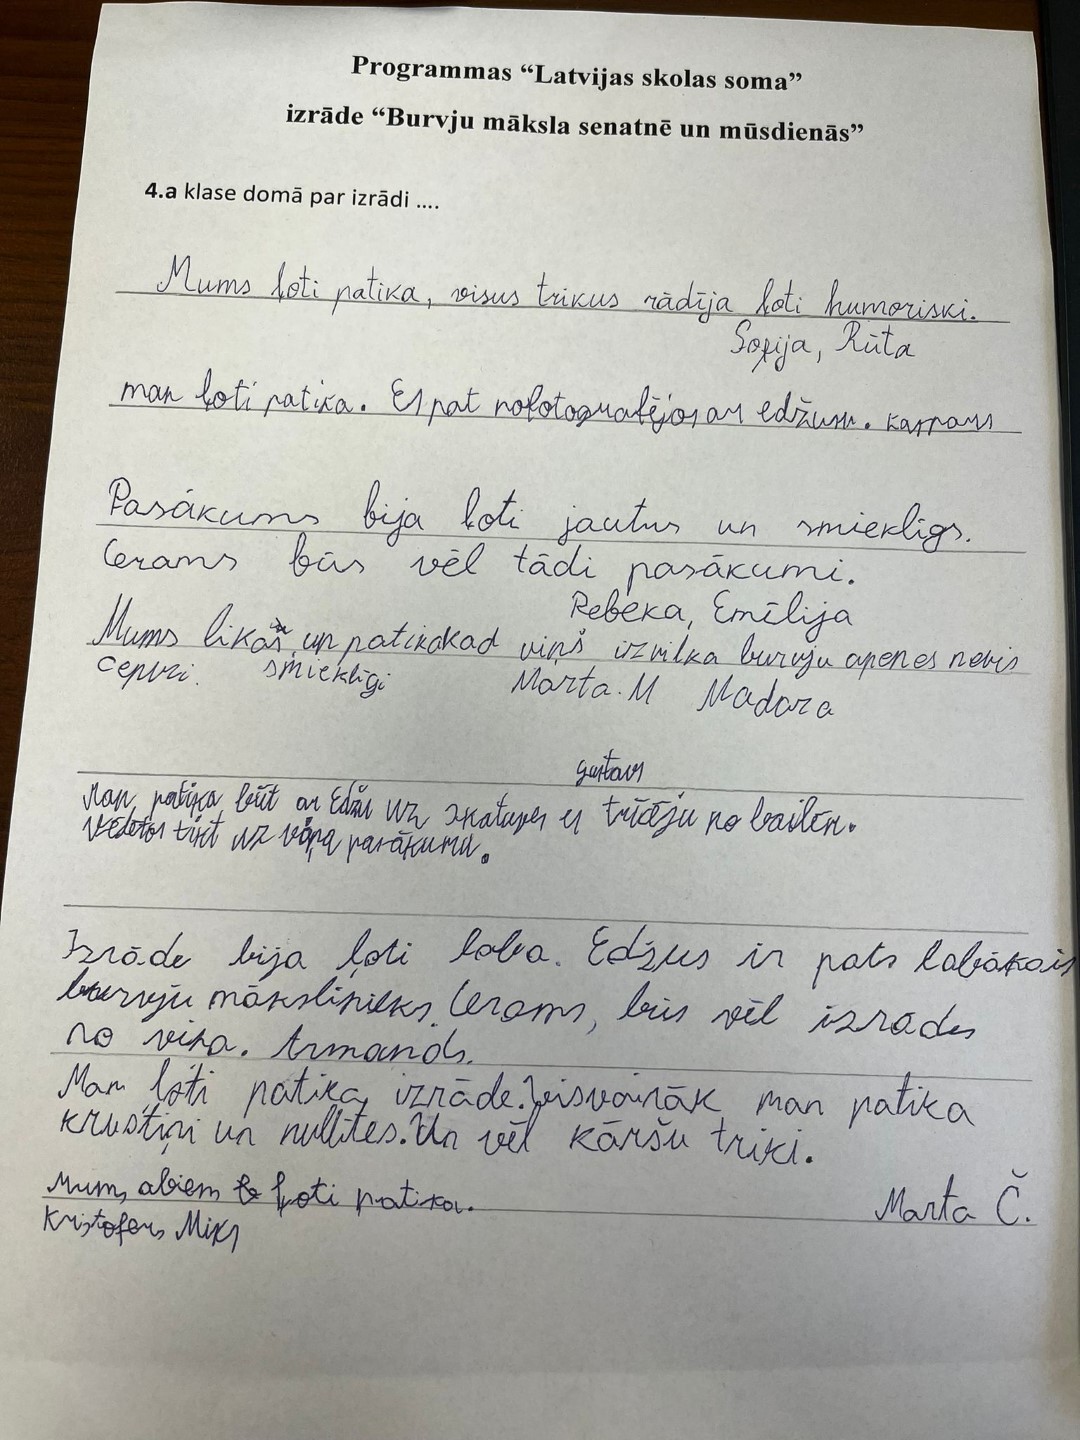 Programmas “Latvijas skolas soma”
izrāde “Burvju māksla senatnē un mūsdienās”
4.a klase domā par izrādi ....
Mums ļoti patika, visus trikus rādīja ļoti humoriski.
Sofija, Rūta
man ļoti patika. Es pat nofotografējos ar edžum. kaspars
Pasākums bija ļoti jautrs un smieklīgs.
Cerams būs vēl tādi pasākumi.
Rebeka, Emīlija
Mums likās un patika kad viņš izvilka burvju apenes nevis
cepuri. smieklīgi Marta.M Madara
gustavs
Man patika būt ar Edžu uz skatuves es trīcēju no bailēm.
vēlētos tikt uz viņa pasākumu.
Izrāde bija ļoti laba. Edžus ir pats labākais
burvju māksliņieks. Cerams, būs vēl izrādes
no viņa. Armands.
Man ļoti patika izrāde. Visvairāk man patika
krustiņi un nullītes. Un vēl kāršu triki.
Mums abiem ļoti patika. Marta Č.
Kristofers Miks